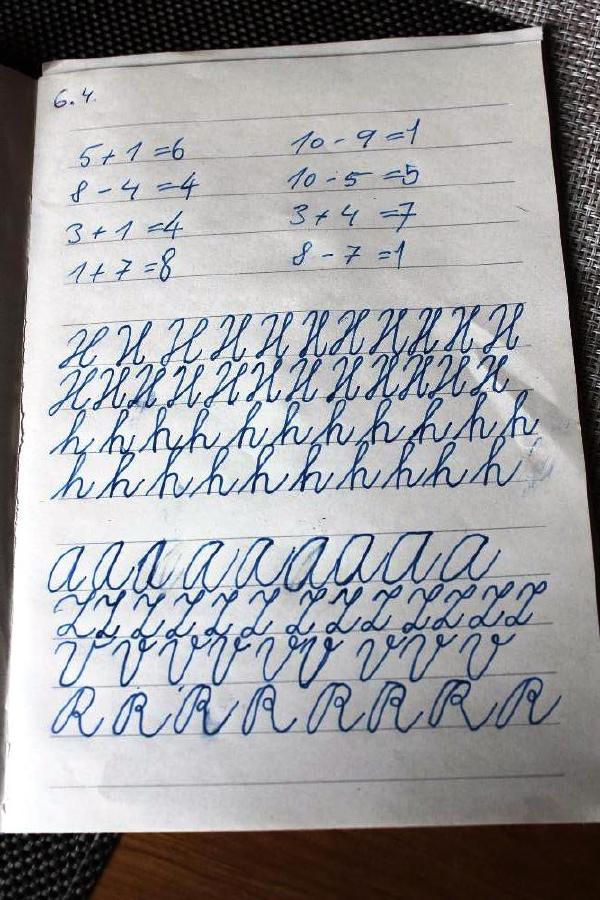 6.4.
5 + 1 = 6 10 - 9 = 1
8 - 4 = 4 10 - 5 = 5
3 + 1 = 4 3 + 4 = 7
1 + 7 = 8 8 - 7 = 1
H H H H H H H H H H H H
H H H H H H H H H H H H
h h h h h h h h h h h
h h h h h h h h h h
a a a a a a a a a
Z Z Z Z Z Z Z Z Z Z Z Z Z
V V V V V V V V V
R R R R R R R R